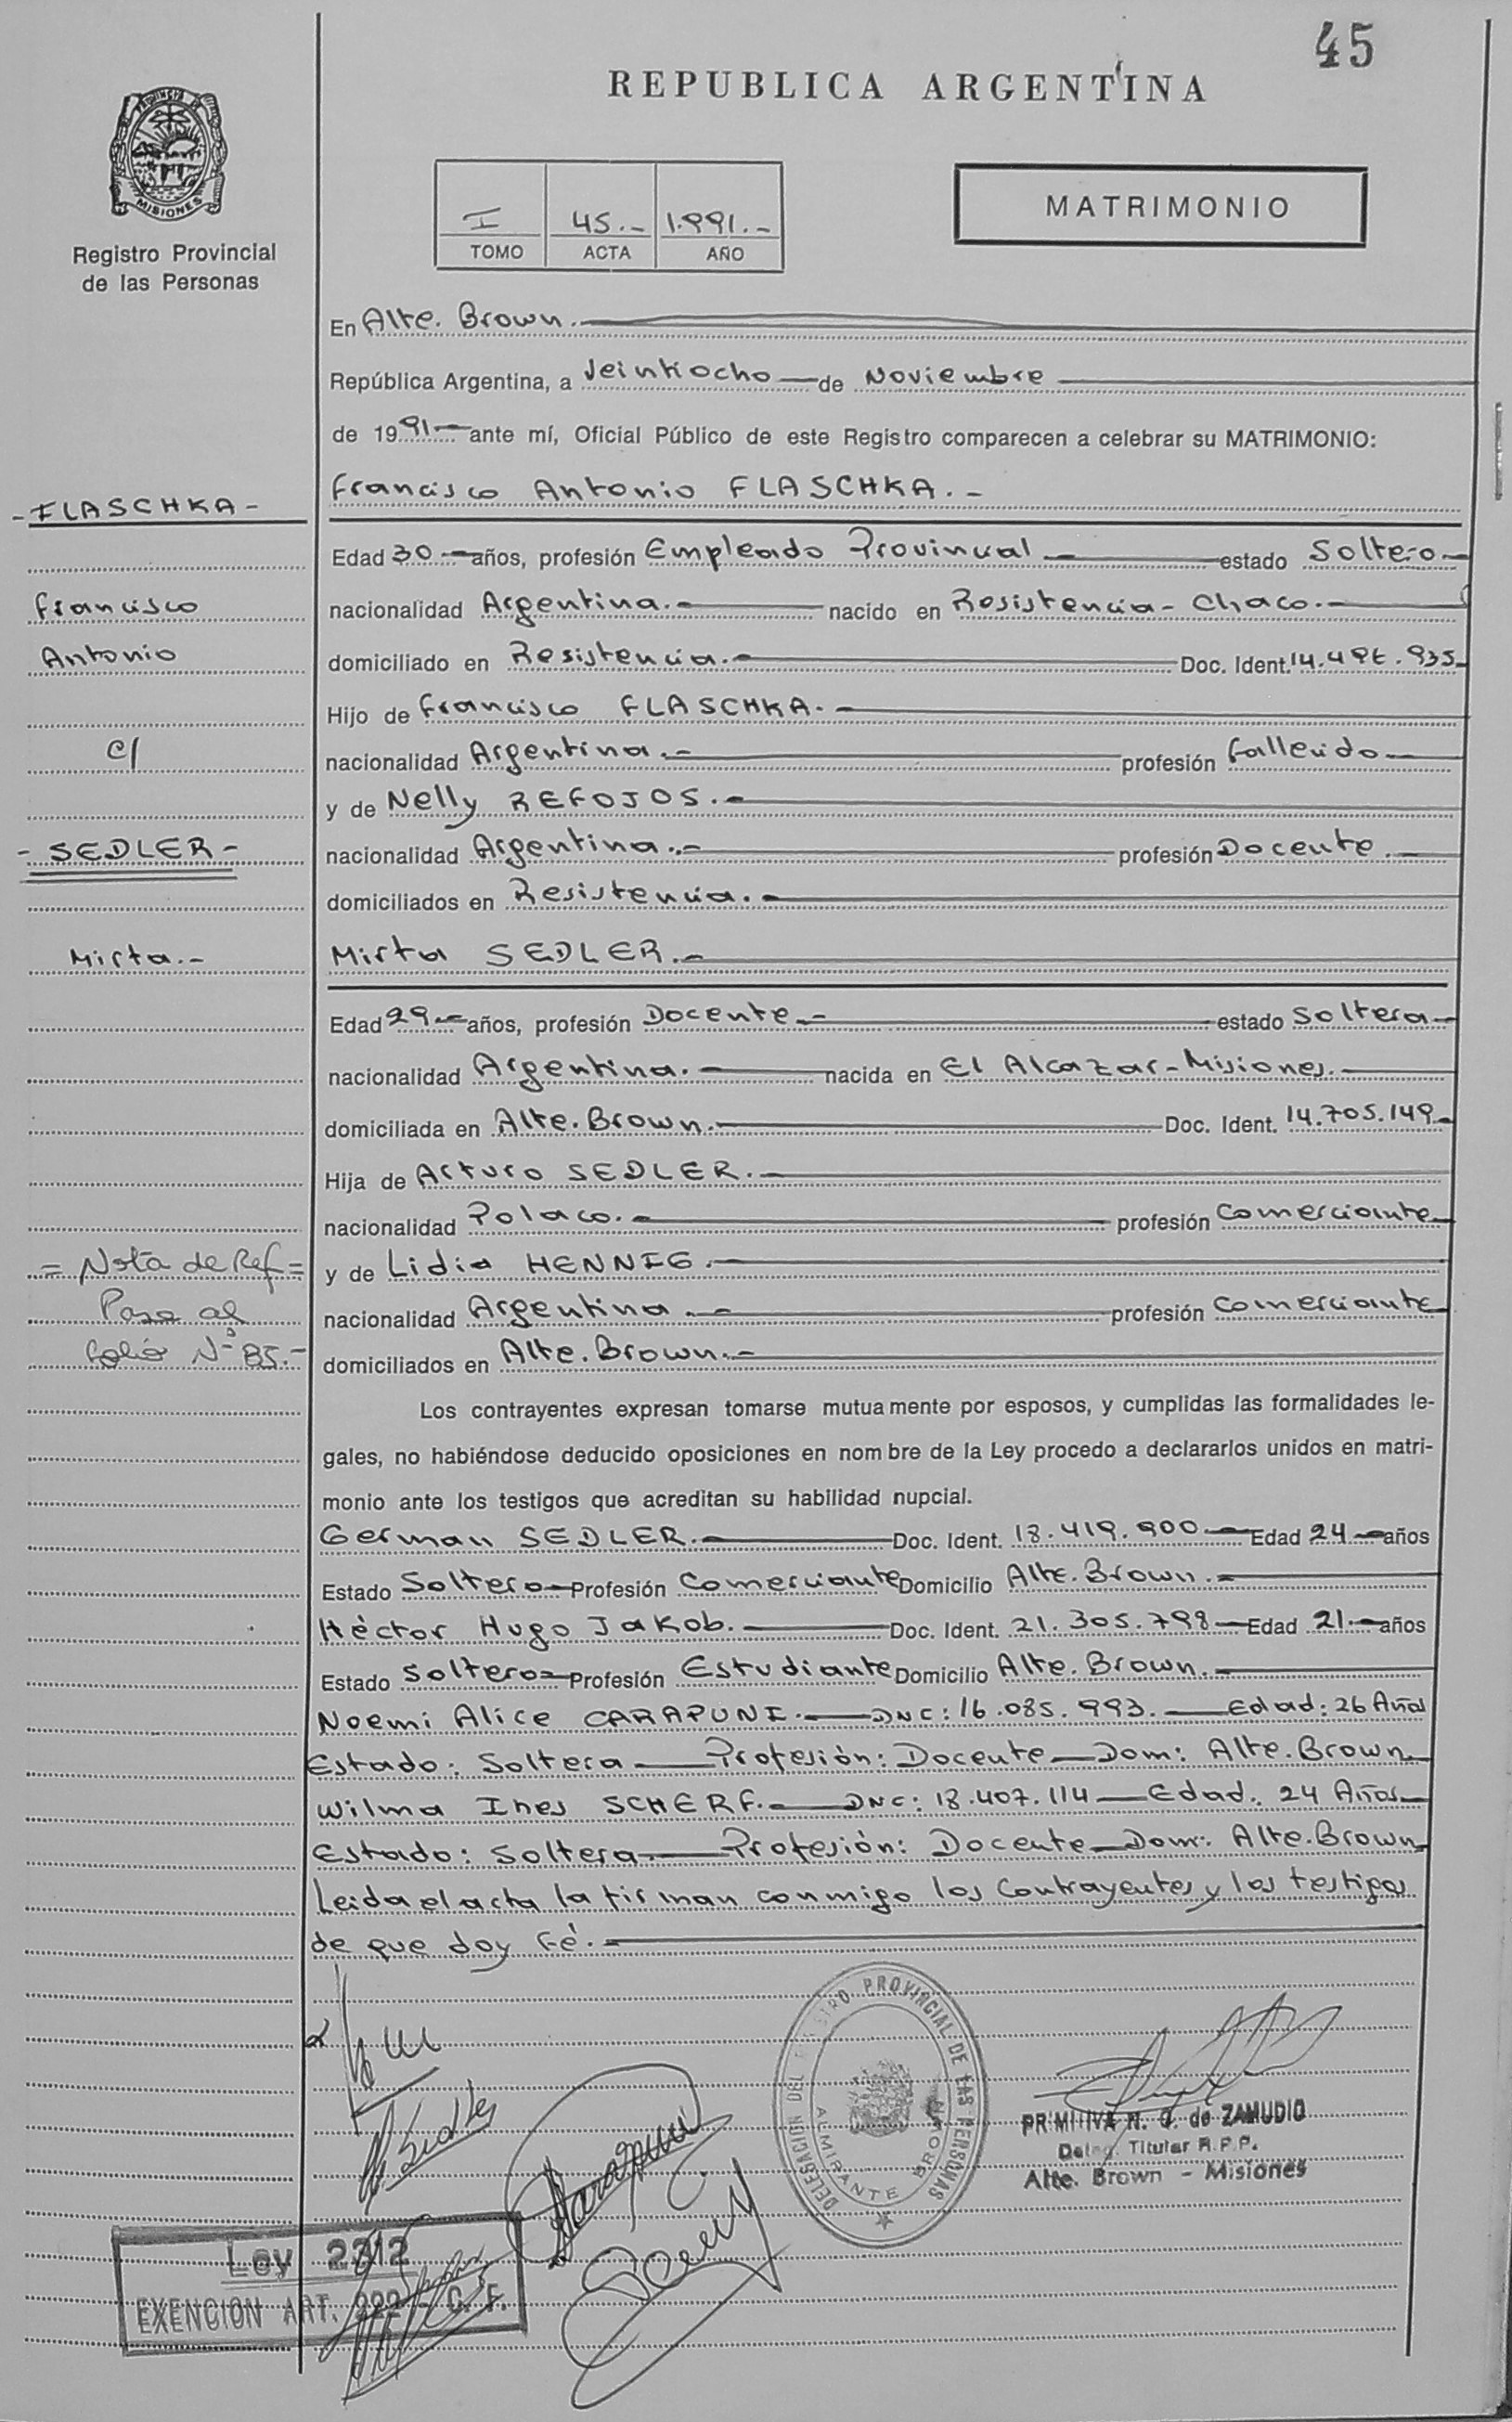 45
REPUBLICA ARGENTINA
MISIONES
Registro Provincial
de las Personas
I 45.- 1.991.-
TOMO ACTA AÑO
MATRIMONIO
En Alte. Brown.
República Argentina, a Veintiocho de Noviembre
de 1991- ante mí, Oficial Público de este Registro comparecen a celebrar su MATRIMONIO:
- FLASCHKA -
Francisco Antonio FLASCHKA. -
Edad 30 años, profesión Empleado Provincial estado Soltero
Francisco
nacionalidad Argentina. nacido en Resistencia - Chaco.
Antonio
domiciliado en Resistencia. Doc. Ident. 14.496.935
Hijo de Francisco FLASCHKA.
c/
nacionalidad Argentina.- profesión fallecido
y de Nelly REFOJOS.
- SEDLER -
nacionalidad Argentina.- profesión Docente.
domiciliados en Resistencia.
Mirta.-
Mirta SEDLER.
Edad 29 años, profesión Docente.- estado Soltera
nacionalidad Argentina. nacida en El Alcazar - Misiones.
domiciliada en Alte. Brown. Doc. Ident. 14.705.149
Hija de Arturo SEDLER.
nacionalidad Polaco. profesión Comerciante
= Nota de Ref =
y de Lidia HENNIG.
Pasa al
nacionalidad Argentina. profesión Comerciante
folio Nº 85.-
domiciliados en Alte. Brown.-
Los contrayentes expresan tomarse mutuamente por esposos, y cumplidas las formalidades le-
gales, no habiéndose deducido oposiciones en nombre de la Ley procedo a declararlos unidos en matri-
monio ante los testigos que acreditan su habilidad nupcial.
German SEDLER. Doc. Ident. 18.419.900 Edad 24 años
Estado Soltero Profesión Comerciante Domicilio Alte. Brown.
Héctor Hugo Jakob. Doc. Ident. 21.305.798 Edad 21 años
Estado Soltero Profesión Estudiante Domicilio Alte. Brown.
Noemi Alice CARAPUNI. DNC: 16.085.993. Edad: 26 Años
Estado: Soltera Profesión: Docente Dom: Alte. Brown
Wilma Ines SCHERF. DNC: 18.407.114 Edad: 24 Años
Estado: Soltera Profesión: Docente Dom: Alte. Brown
Leida el acta la firman conmigo los Contrayentes y los testigos
de que doy Fé.
DELEGACION DEL REGISTRO PROVINCIAL DE LAS PERSONAS
ALMIRANTE BROWN
PRIMITIVA N. G. de ZAMUDIO
Deleg. Titular R.P.P.
Alte. Brown - Misiones
Ley 2312
EXENCION ART. 222 - C. F.